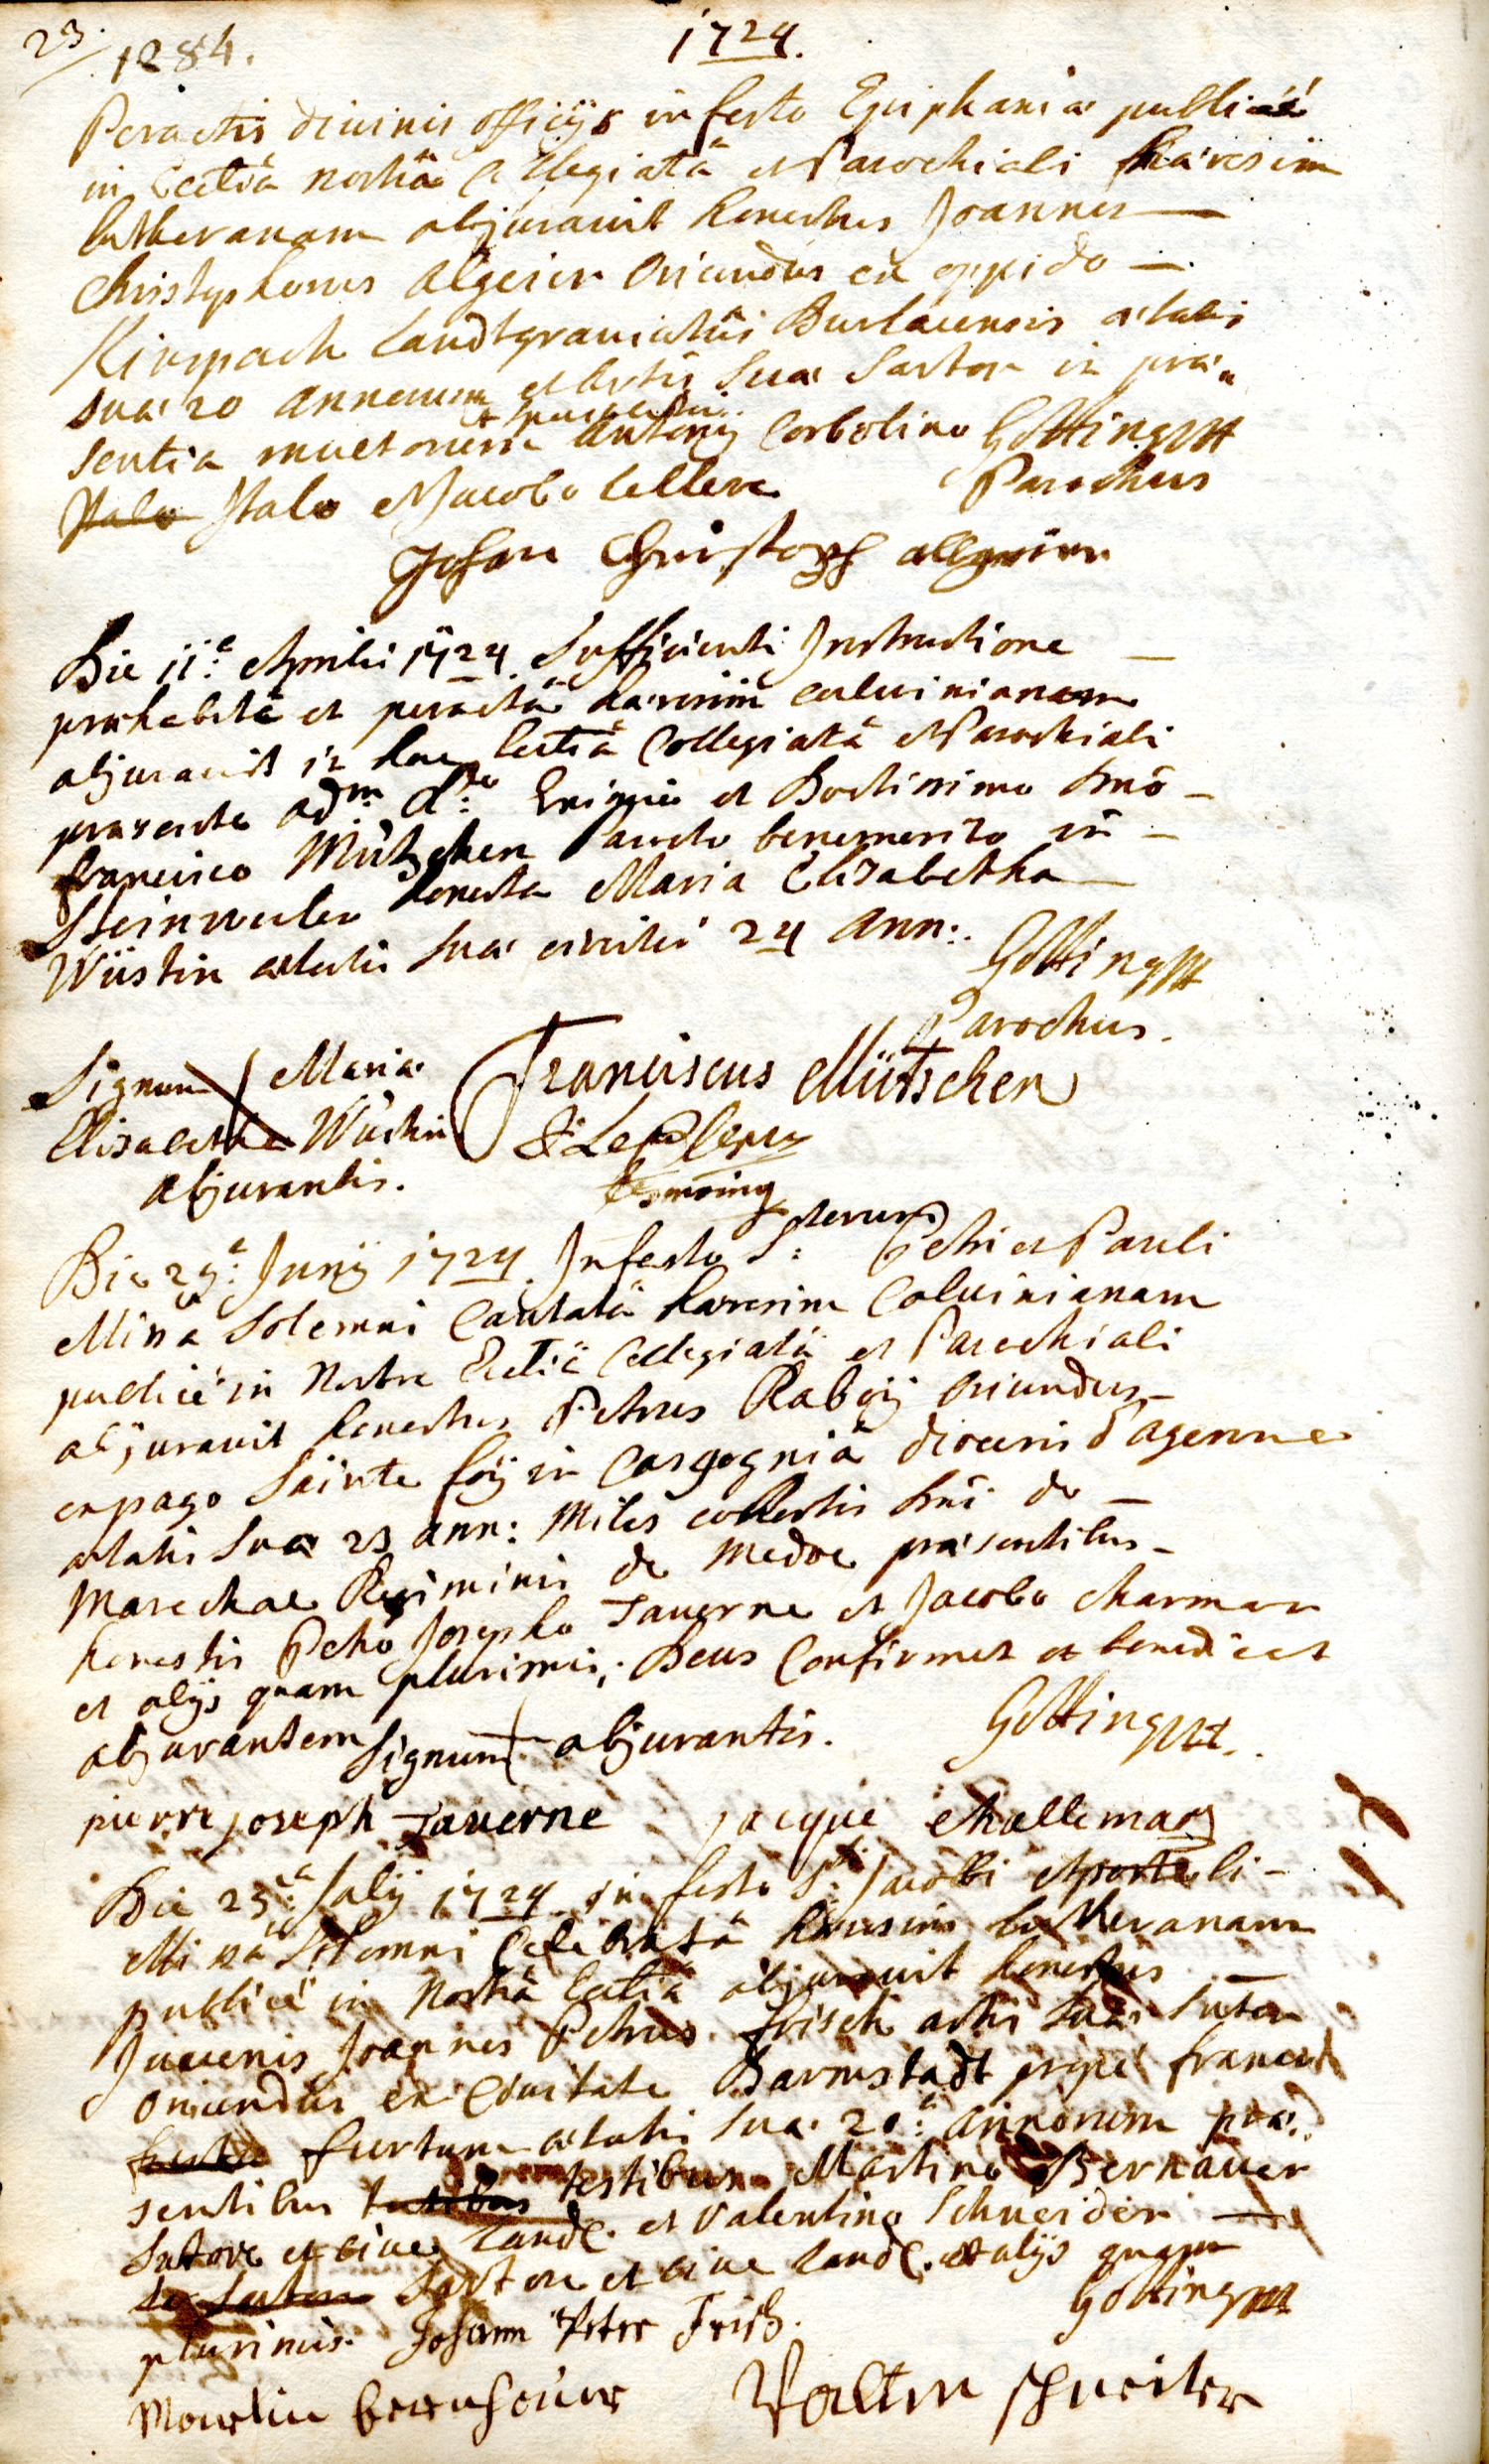 23.
1284.
1724.
Peractis divinis officijs in festo Epiphaniæ publicè
in Ecctiâ nostrâ Collegiatâ et Parochiali hæresim
lutheranam abjuravit honestus Joannes
Christophorus Algeier oriundus ex oppido
Kirspach Landtgraviatûs Durlacensis ætatis
suæ 20 annorum et artis suæ Sartor in præ
sentia Antonij Corbolino Götting
Italo Italo et Jacobo Cellere Parochus
Johan Christoph allgeier
Die 11.a Aprilis 1724 Sufficienti Instructione
præhabitâ et peractâ hæresim calvinianam
abjuravit in hac Ecctiâ Collegiatâ et Parochiali
præsente adm. Eximio et Doctissimo Dno
francisco Mütschen Parocho benemerito in
Steinweiler honesta Maria Elisabetha
Wüstin ætatis suæ circiter 24 ann:.
Götting
Parochus.
Signum Maria
Elisabetha Wüstin
abjurantis.
Franciscus Mütschen
Die 29.a Junij 1724 In festo S:ctorum Petri et Pauli
Missâ Solemni Cantatâ hæresim Calvinianam
publicè in Nostra Ecctiâ Collegiatâ et Parochiali
abjuravit honestus Petrus Raboij oriundus
ex pago Sainte foij in Casgogniâ diocesis d'agenne
ætatis suæ 23 ann: Miles cohortis Dni de
Marechae Regiminis de Medoc præsentibus
honestis Petro Josepho Taverne et Jacobo charmar
et alijs quam plurimis; Deus Confirmet et benedicat
abjurantem Signum abjurantis.
Götting
pierre joseph Taverne jacque challemar
Die 25.a Julij 1724 in festo S.ti Jacobi Apostoli
Missâ Solemni Celebratâ hæresim lutheranam
publicè in Nostrâ Ecctiâ abjuravit honestus
Juvenis Joannes Petrus frisch artis suæ Sutor
oriundus ex Civitate Darmstadt propè francu
furtum ætatis suæ 20.a annorum præ
sentibus testibus testibus Martino Bernauer
Sutore et cive Land. et Valentino Schneider
Sartore et cive Land. et alijs quam
plurimis. Johann Peter Frisch. Götting
Valtin schneiter